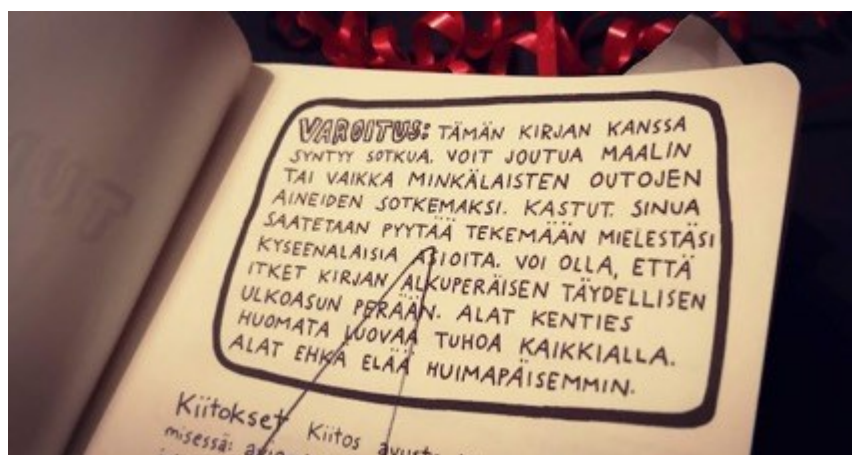 VAROITUS: TÄMÄN KIRJAN KANSSA
SYNTYY SOTKUA. VOIT JOUTUA MAALIN
TAI VAIKKA MINKÄLAISTEN OUTOJEN
AINEIDEN SOTKEMAKSI. KASTUT. SINUA
SAATETAAN PYYTÄÄ TEKEMÄÄN MIELESTÄSI
KYSEENALAISIA ASIOITA. VOI OLLA, ETTÄ
ITKET KIRJAN ALKUPERÄISEN TÄYDELLISEN
ULKOASUN PERÄÄN. ALAT KENTIES
HUOMATA LUOVAA TUHOA KAIKKIALLA.
ALAT EHKÄ ELÄÄ HUIMAPÄISEMMIN.
Kiitokset Kiitos
misessä: